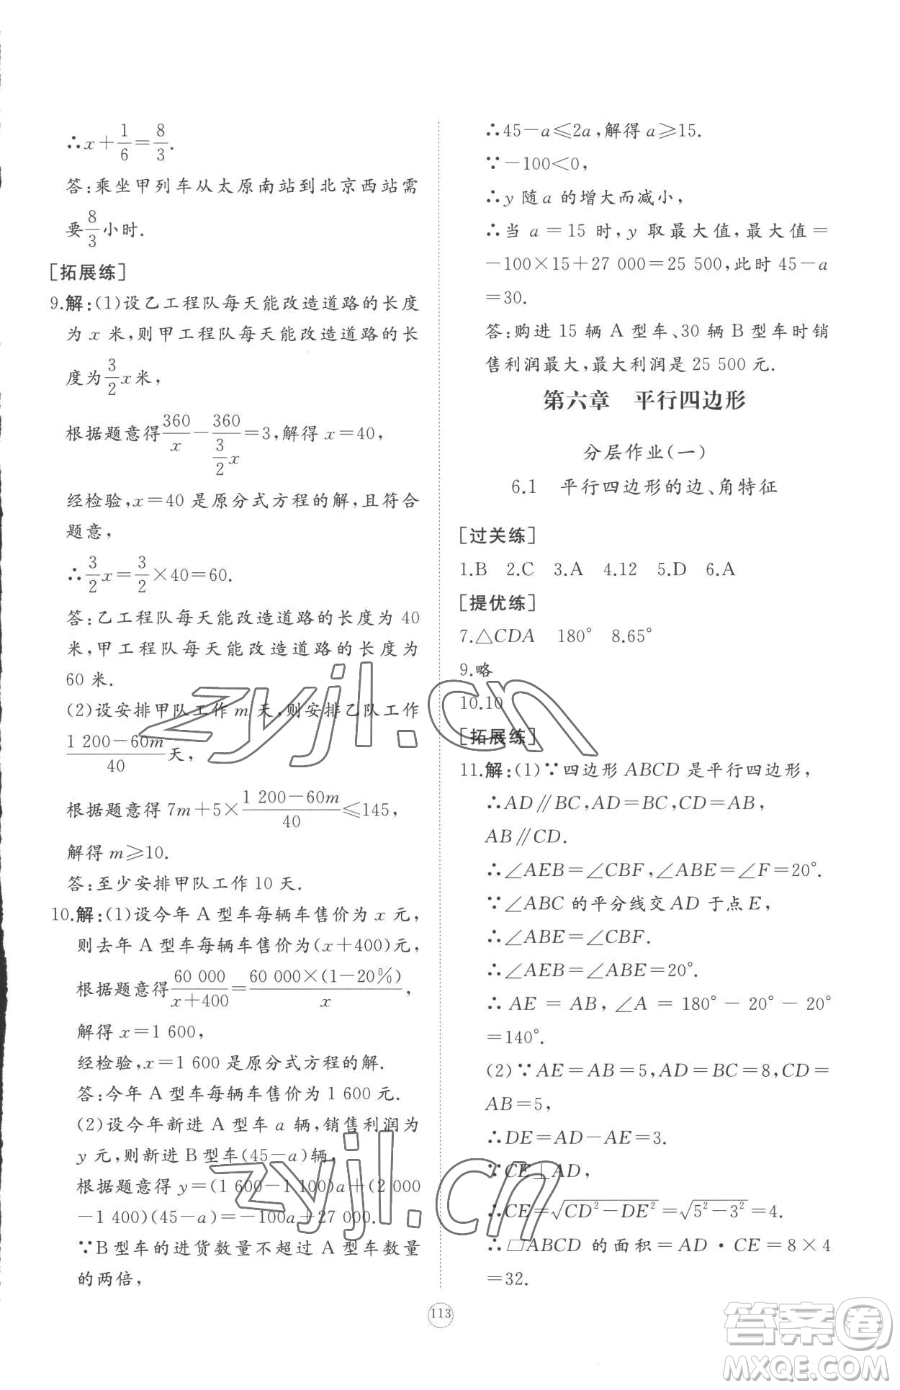 ∴x+1/6=8/3.
答:乘坐甲列车从太原南站到北京西站需
要8/3小时.
[拓展练]
9.解:(1)设乙工程队每天能改造道路的长度
为 x 米,则甲工程队每天能改造道路的长
度为3/2x米,
根据题意得360/x−360/(3/2x)=3,解得x=40,
经检验,x=40是原分式方程的解,且符合
题意,
∴3/2x=3/2×40=60.
答:乙工程队每天能改造道路的长度为 40
米,甲工程队每天能改造道路的长度为
60 米.
(2)设安排甲队工作m天,则安排乙队工作
(1 200−60m)/40天,
根据题意得7m+5×(1 200−60m)/40≤145,
解得m≥10.
答:至少安排甲队工作 10 天.
10.解:(1)设今年 A 型车每辆车售价为 x 元,
则去年 A 型车每辆车售价为(x+400)元,
根据题意得60 000/(x+400)=60 000×(1−20%)/x,
解得x=1 600,
经检验,x=1 600是原分式方程的解.
答:今年 A 型车每辆车售价为 1 600 元.
(2)设今年新进 A 型车 a 辆,销售利润为
y元,则新进B型车(45−a)辆,
根据题意得y=(1 600−1 100)a+(2 000
−1 400)(45−a)=−100a+27 000.
∵B 型车的进货数量不超过 A 型车数量
的两倍,
∴45−a≤2a,解得a≥15.
∵−100<0,
∴y随a的增大而减小,
∴当 a=15 时, y 取最大值,最大值=
−100×15+27 000=25 500,此时45−a
=30.
答:购进 15 辆 A 型车、30 辆 B 型车时销
售利润最大,最大利润是 25 500 元.
第六章 平行四边形
分层作业(一)
6.1 平行四边形的边、角特征
[过关练]
1.B 2.C 3.A 4.12 5.D 6.A
[提优练]
7.△CDA 180° 8.65°
9.略
10.10
[拓展练]
11.解:(1)∵四边形ABCD是平行四边形,
∴AD∥BC,AD=BC,CD=AB,
AB∥CD.
∴∠AEB=∠CBF,∠ABE=∠F=20°.
∵∠ABC的平分线交AD于点E,
∴∠ABE=∠CBF.
∴∠AEB=∠ABE=20°.
∴AE=AB,∠A=180°−20°−20°
=140°.
(2)∵AE=AB=5,AD=BC=8,CD=
AB=5,
∴DE=AD−AE=3.
∵CE⊥AD,
∴CE=√(CD²−DE²)=√(5²−3²)=4.
∴▱ABCD的面积=AD·CE=8×4
=32.
113
zyjl.cn
zyjl.cn
答案圈
MXQE.COM